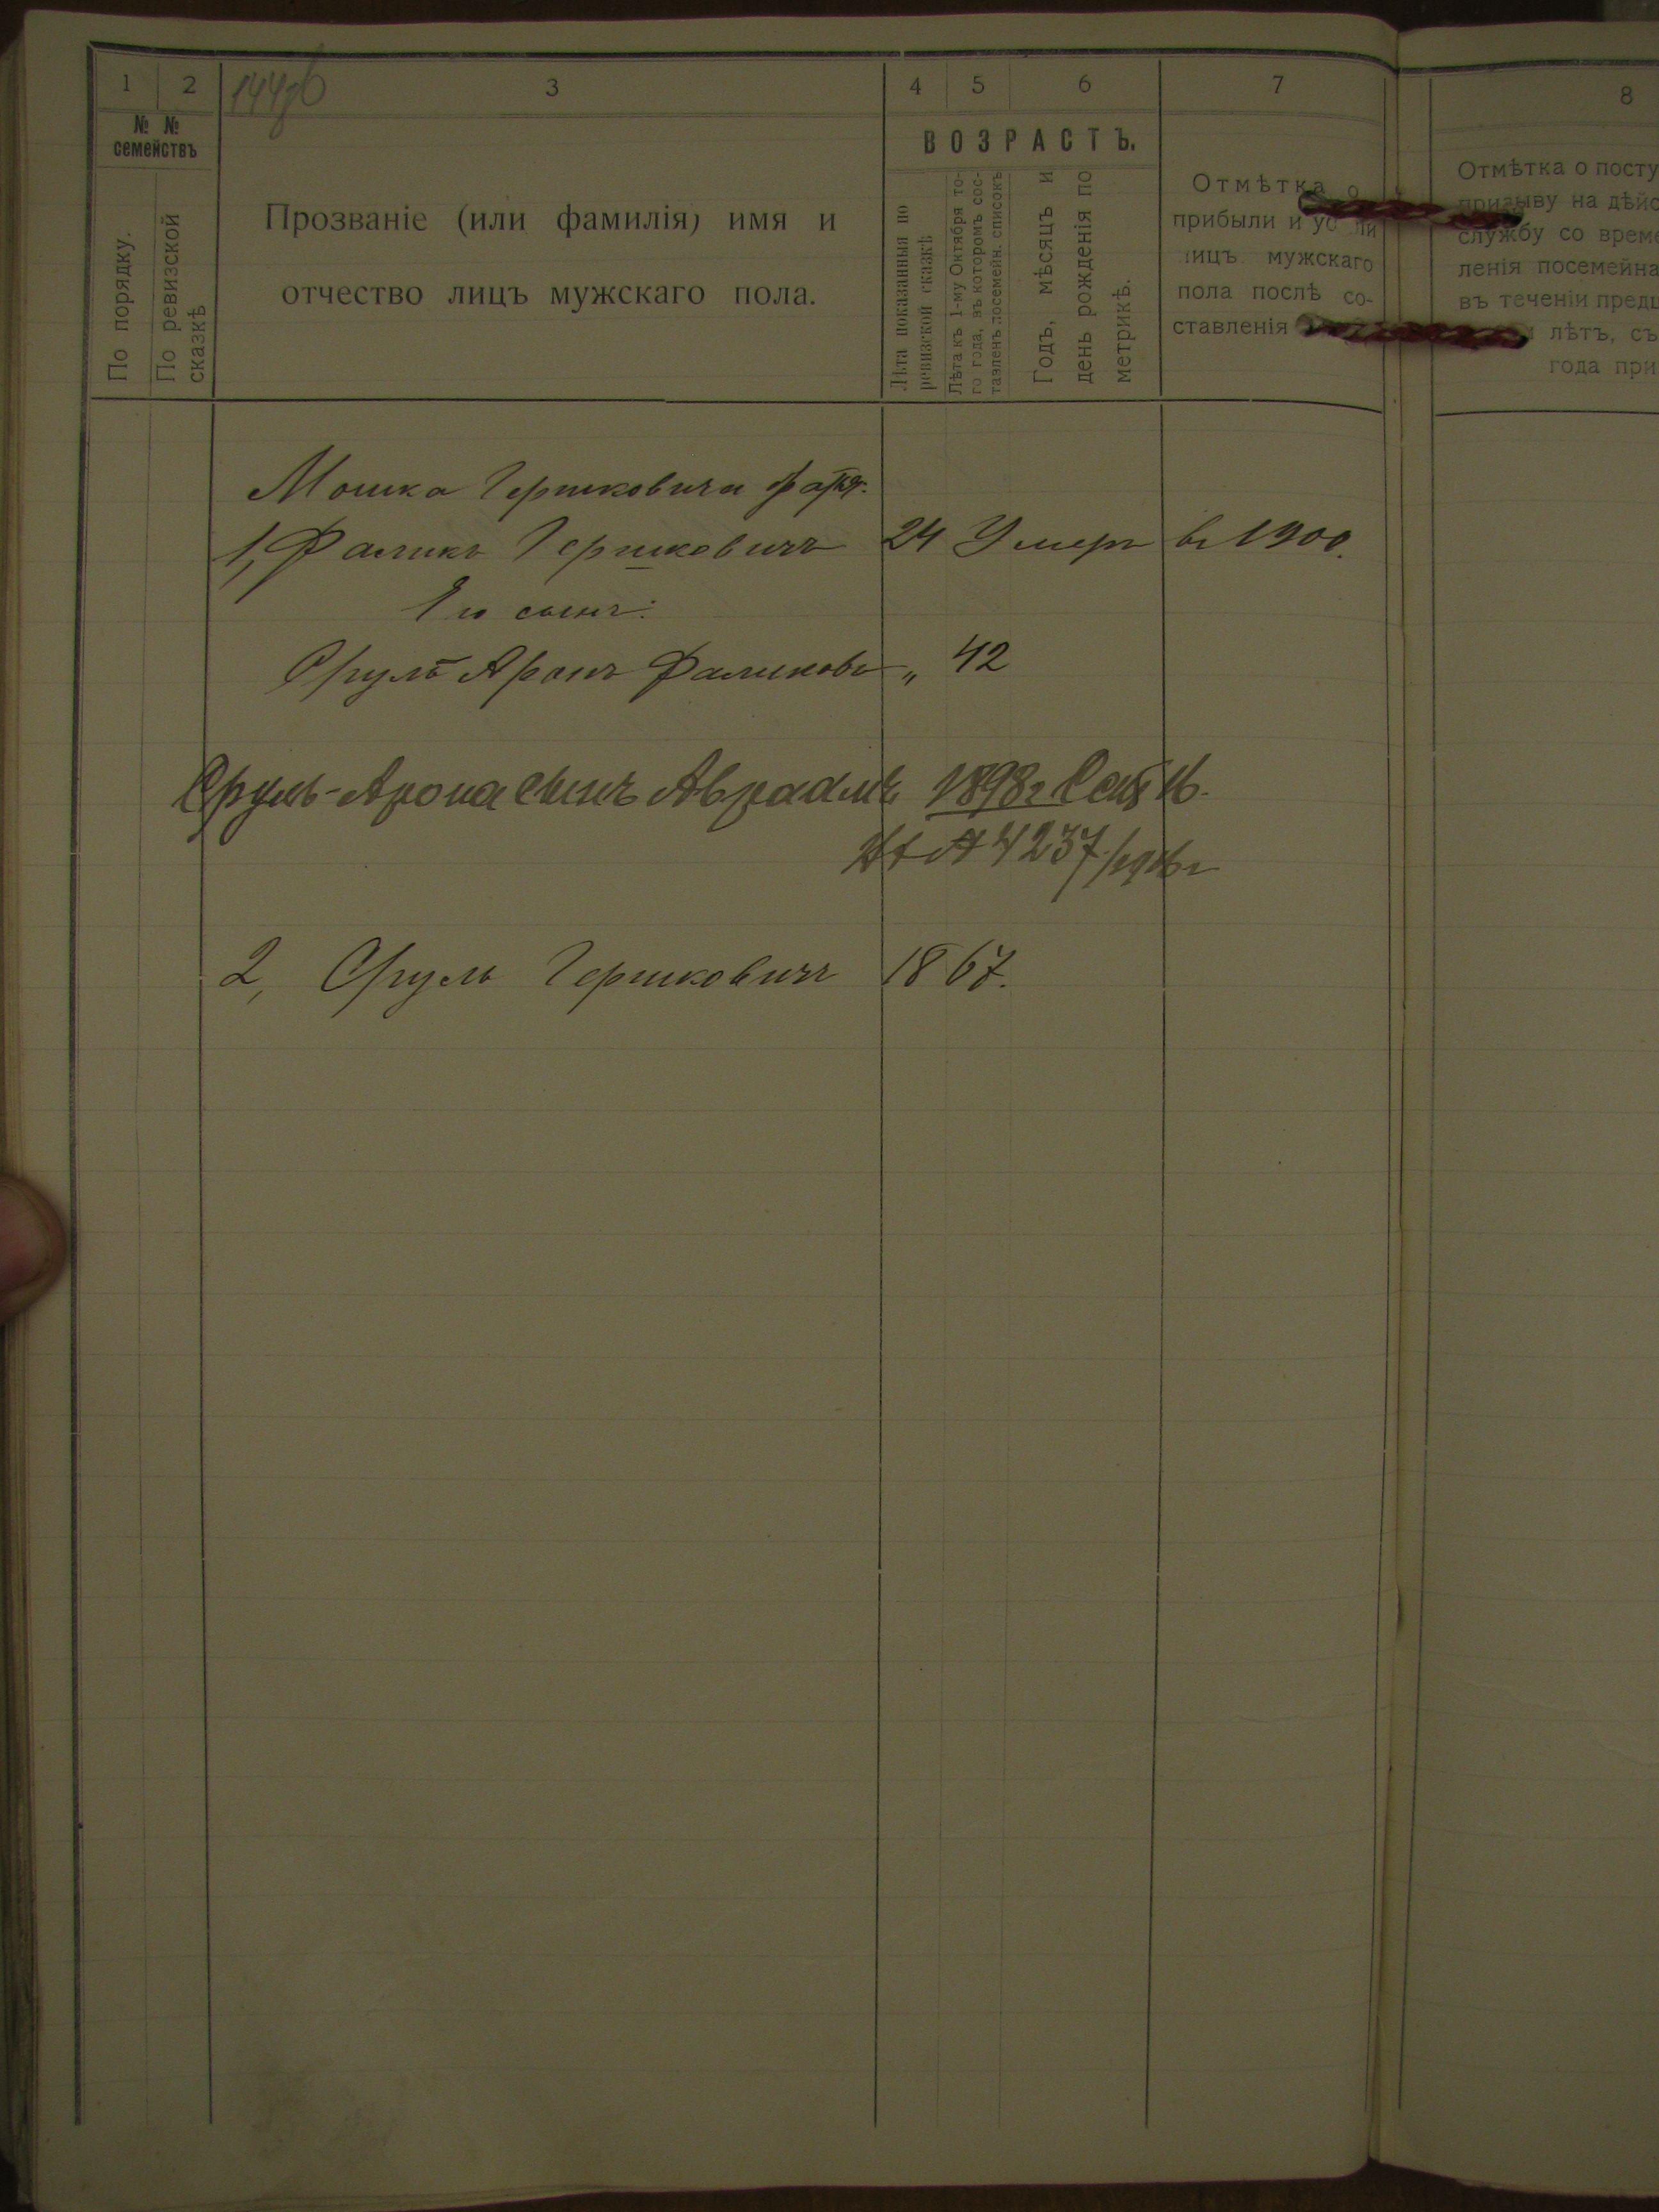 1 2 144об 3 4 5 6 7 8
№ № семействъ
По порядку.
По ревизской сказкѣ
Прозваніе (или фамилія) имя и
отчество лицъ мужскаго пола.
ВОЗРАСТЪ.
Лѣта показанныя по
ревизской сказкѣ
Лѣта къ 1-му Октября то-
го года, въ которомъ сос-
тавленъ посемейн. списокъ
Годъ, мѣсяцъ и
день рожденія по
метрикѣ.
Отмѣтка о
прибыли и
лицъ мужскаго
пола послѣ со-
ставленія
Отмѣтка о посту
призыву на дѣйс
службу со време
ленія посемейна
въ теченіи предш
лѣтъ, съ
года при
Мошка Гершковича
1, Фаликъ Гершковичъ 24 Умеръ въ 1900.
Его сынъ:
Сруль Аронъ Фаликовъ „ 42
Сруль-Арона сынъ Авраамъ 1898г Сент 16.
4237/
2, Сруль Гершковичъ 1867.